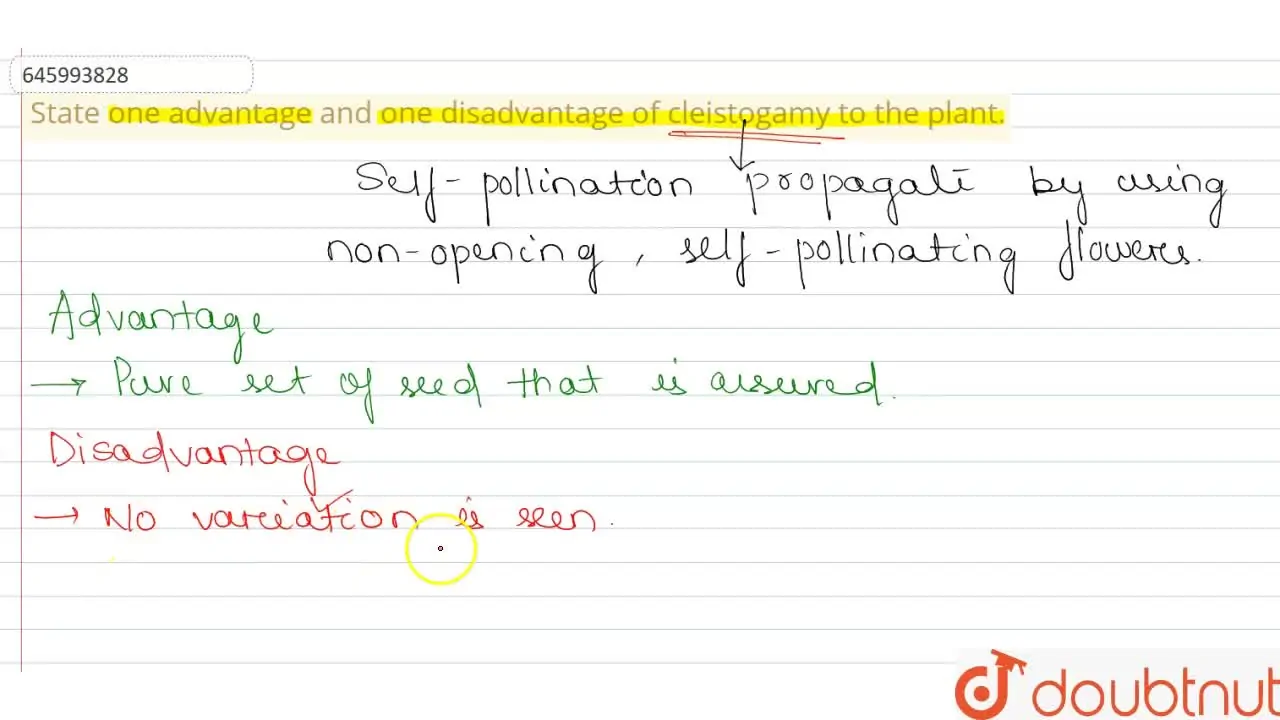 645993828
State one advantage and one disadvantage of cleistogamy to the plant.
Self-pollination propagate by using
non-opening, self-pollinating flowers.
Advantage
→ Pure set of seed that is assured.
Disadvantage
→ No variation is seen.
doubtnut